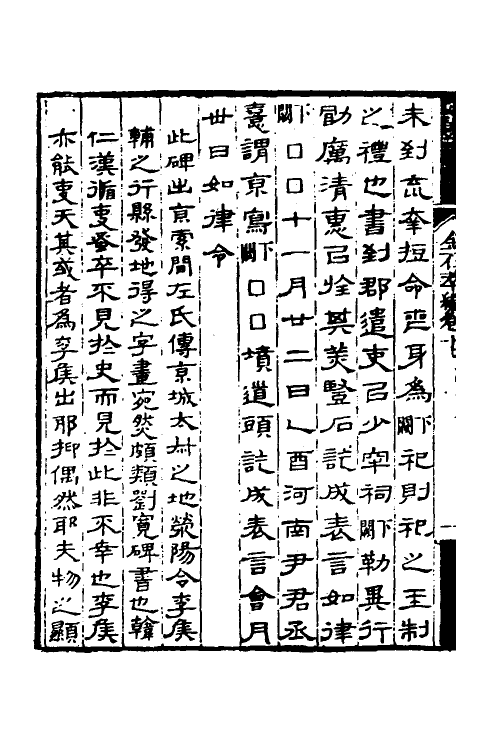 未到奔短命喪身為下闕祀則祀之王制
之禮也書到郡遣吏㠯少牢祠下闕勒異行
勸厲清惠㠯㫌其美豎石訖成表言如律
下闕□□十一月廿二日乙酉河南尹君丞
憙謂京寫下闕□□墳道頭訖成表言會月
丗日如律令
此碑出京索間左氏傳京城太叔之地滎陽令李侯
輔之行縣發地得之字畫宛然頗類劉寬碑書也韓
仁漢循吏蚤卒不見於史而見於此非不幸也李侯
亦能吏天其或者為李侯出耶抑偶然耶夫物之顯
金石萃編卷十七